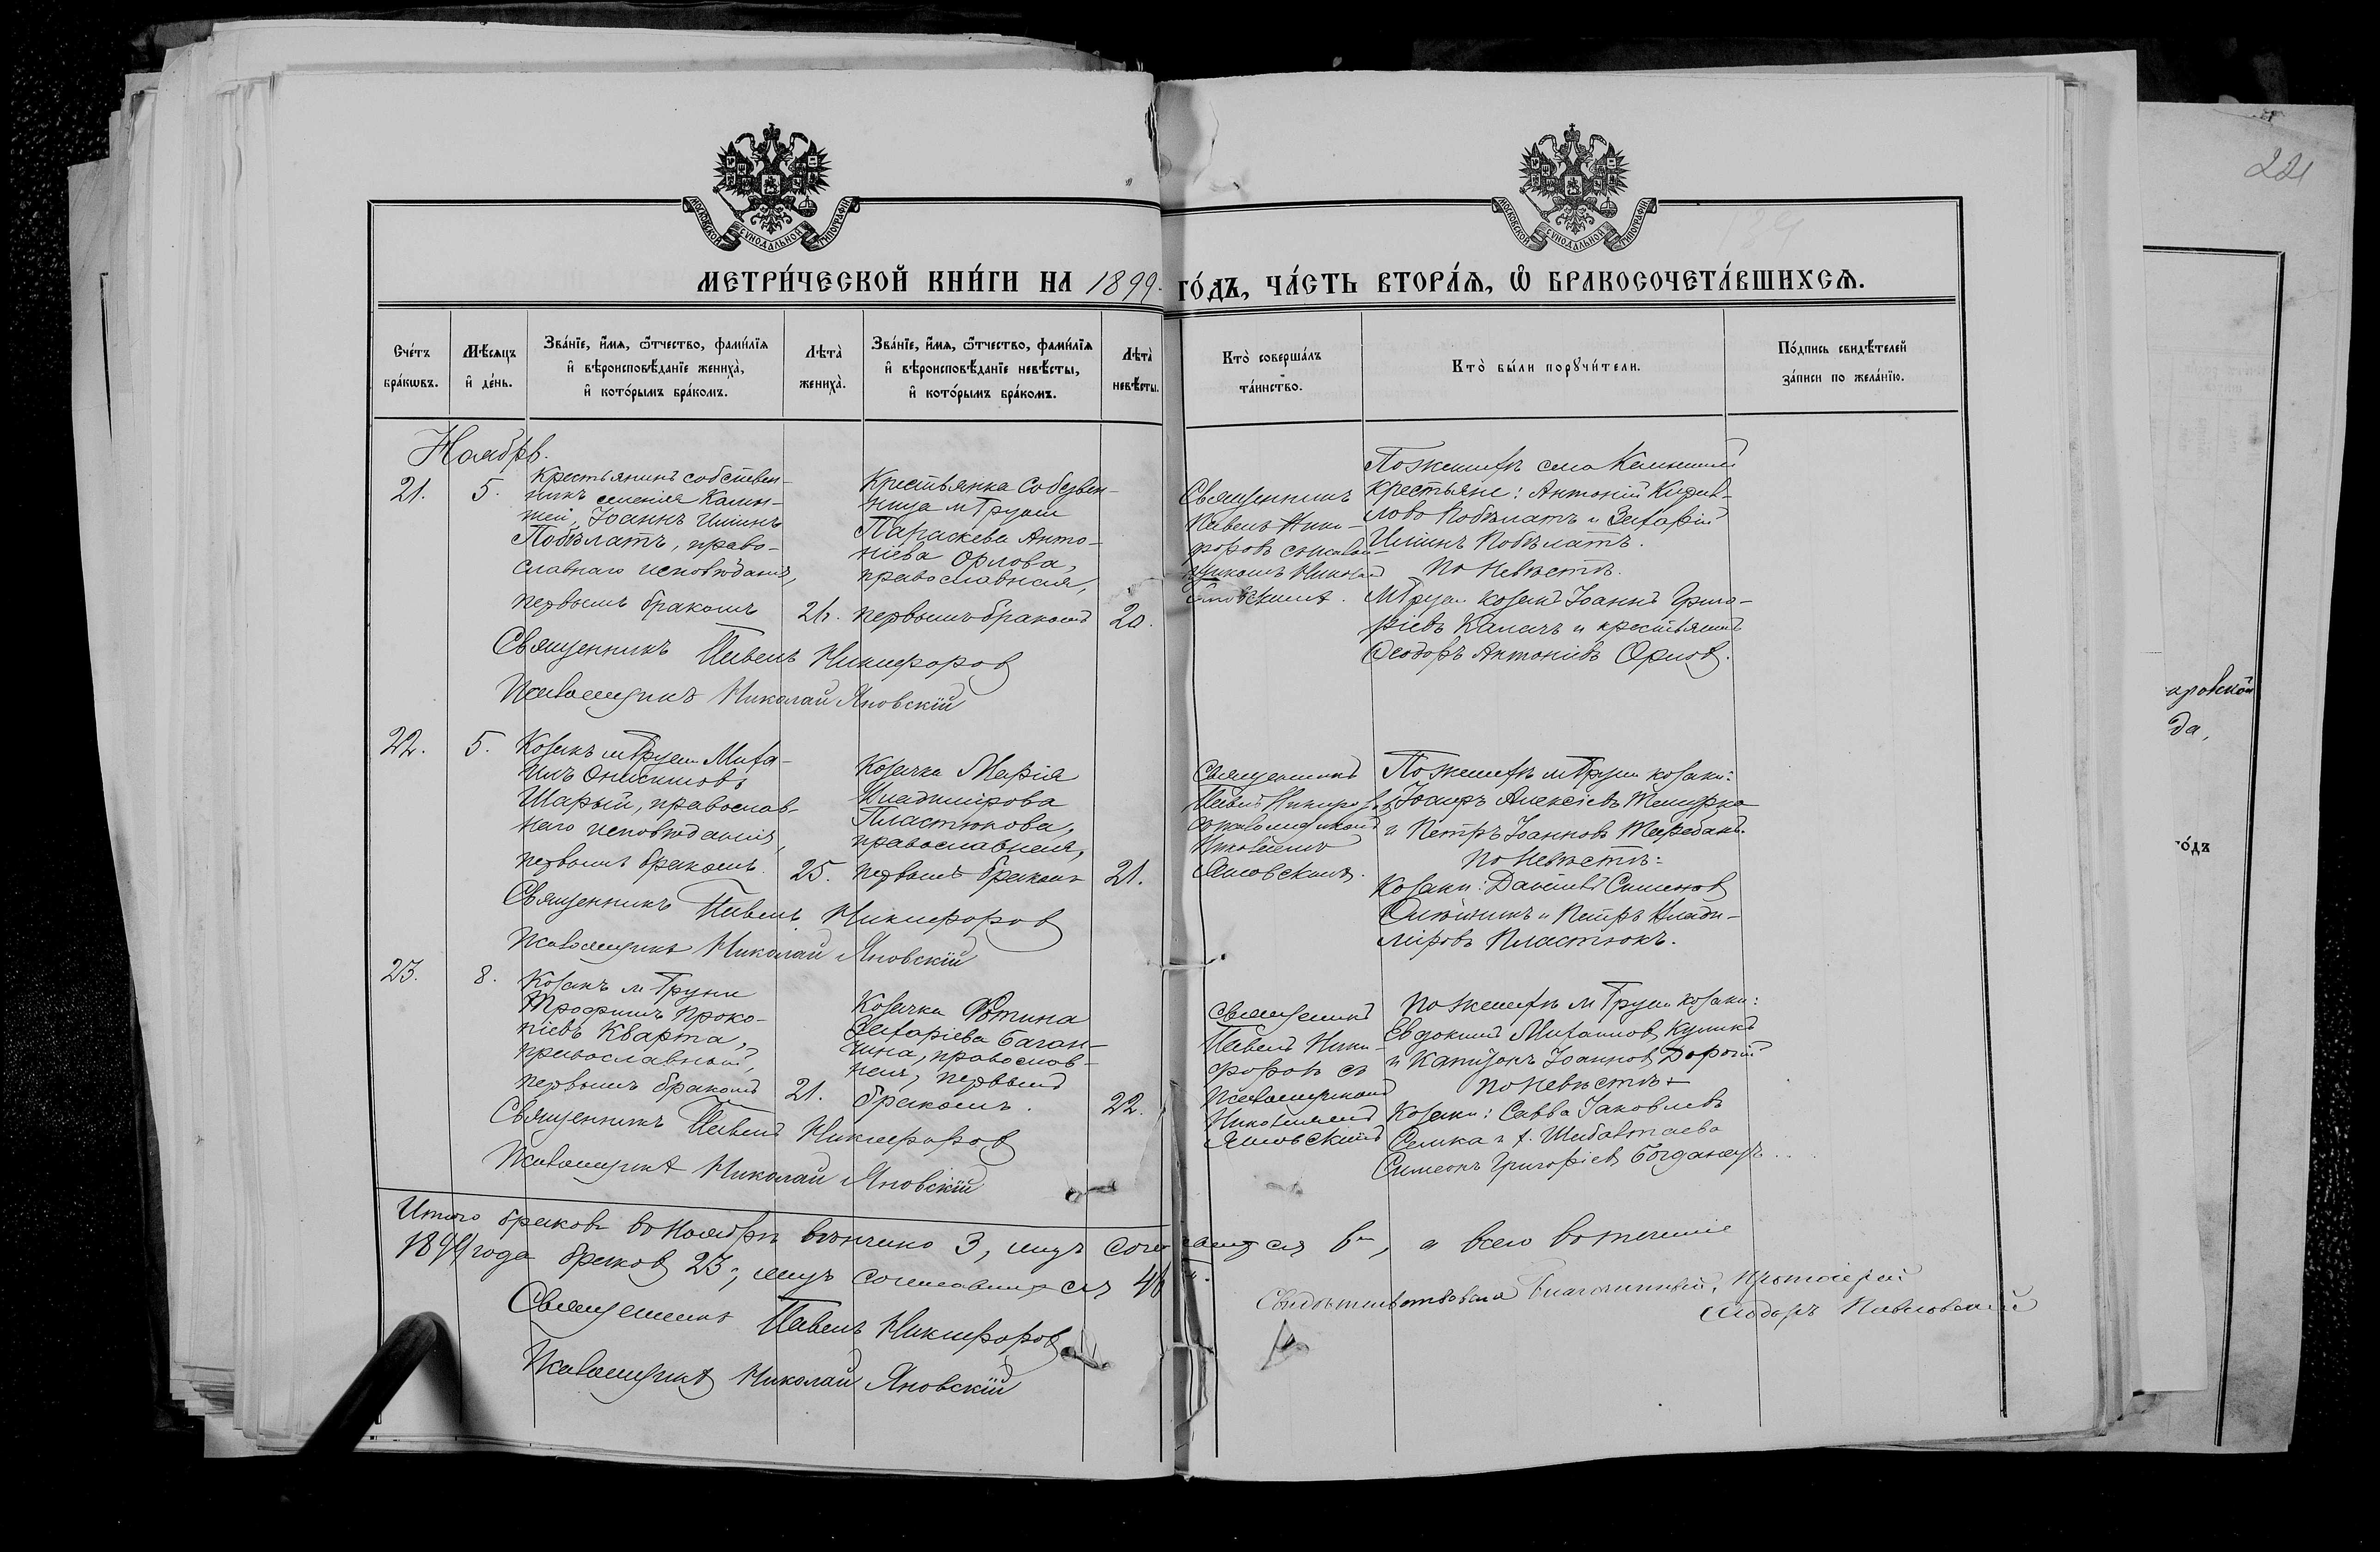 221
139
МОСКОВСКОЙ СѴНОДАЛЬНОЙ ТИПОГРАФІИ
МОСКОВСКОЙ СѴНОДАЛЬНОЙ ТИПОГРАФІИ
МЕТРИ́ЧЕСКОЙ КНИ́ГИ НА 1899. ГО́ДЪ, ЧА́СТЬ ВТОРА́Ѧ, Ѽ БРАКОСОЧЕТА́ВШИХСѦ.
Сче́тъ бра́кѡвъ.
Мѣ́сяцъ и҆ де́нь.
Зва́нїе, и҆́мя, ѻ҆́тчество, фами́лїя и҆ вѣроисповѣ́данїе жениха̀, и҆ кото́рымъ бра́комъ.
Лѣта̀ жениха̀.
Зва́нїе, и҆́мя, ѻ҆́тчество, фами́лїя и҆ вѣроисповѣ́данїе невѣ́сты, и҆ кото́рымъ бра́комъ.
Лѣта̀ невѣ́сты.
Кто̀ соверша́лъ та́инство.
Кто̀ бы́ли порꙋчи́тели.
По́дпись свидѣ́телей за́писи по жела́нїю.
Ноябрь.
21.
5.
Крестьянинъ собствен-
никъ селенія
Іоаннъ
право-
славнаго исповѣданія,
первымъ бракомъ
26.
Крестьянка собствен-
ница м Груни
Параскева Анто-
ніева Орлова,
православная,
первымъ бракомъ
20.
Священникъ
Павелъ Ники-
форовъ
Николаемъ
Яновскимъ.
По женихѣ села
крестьяне: Антоній
и Захарій
По невѣстѣ.
М Груни козакъ Іоаннъ Григо-
ріевъ Калачъ и крестьянинъ
Ѳеодоръ Антоніевъ Орловъ.
Священникъ Павелъ Никифоровъ
Псаломщикъ Николай Яновскій
22.
5.
Козакъ м Груни Миха-
илъ
Шарый, православ-
наго исповѣданія,
первымъ бракомъ.
25.
Козачка Марія
Владимірова
Пластюкова,
православная,
первымъ бракомъ
21.
Священникъ
Павелъ Никифоровъ
съ псаломщикомъ
Николаемъ
Яновскимъ.
По женихѣ м Груни козаки:
Алексіевъ
и Петръ Іоанновъ
По невѣстѣ:
Козаки: Симеоновъ
и Петръ Влади-
міровъ Пластюкъ.
Священникъ Павелъ Никифоровъ
Псаломщикъ Николай Яновскій
23.
8.
Козакъ м Груни
Трофимъ Проко-
піевъ Кварта,
православный,
первымъ бракомъ
21.
Козачка Фотина
Захаріева Баган-
чина, православ-
ная, первымъ
бракомъ.
22.
Священникъ
Павелъ Ники-
форовъ съ
Псаломщикомъ
Николаемъ
Яновскимъ
По женихѣ м Груни козаки:
Евдокимъ Михаиловъ Куликъ
и Іоанновъ Дорогій
По невѣстѣ
Козаки: Савва Іаковлевъ
Симеонъ Григоріевъ Богданецъ.
Священникъ Павелъ Никифоровъ
Псаломщикъ Николай Яновскій
Итого браковъ въ Ноябрѣ вѣнчано 3, лицъ сочетавшихся 6, а всего въ теченіе
1899 года браковъ 23, лицъ сочетавшихся 46.
Священникъ Павелъ Никифоровъ
Псаломщикъ Николай Яновскій
Свидѣтельствовалъ Благочинный, Протоіерей
Ѳеодоръ Павловскій
да,
го́дъ